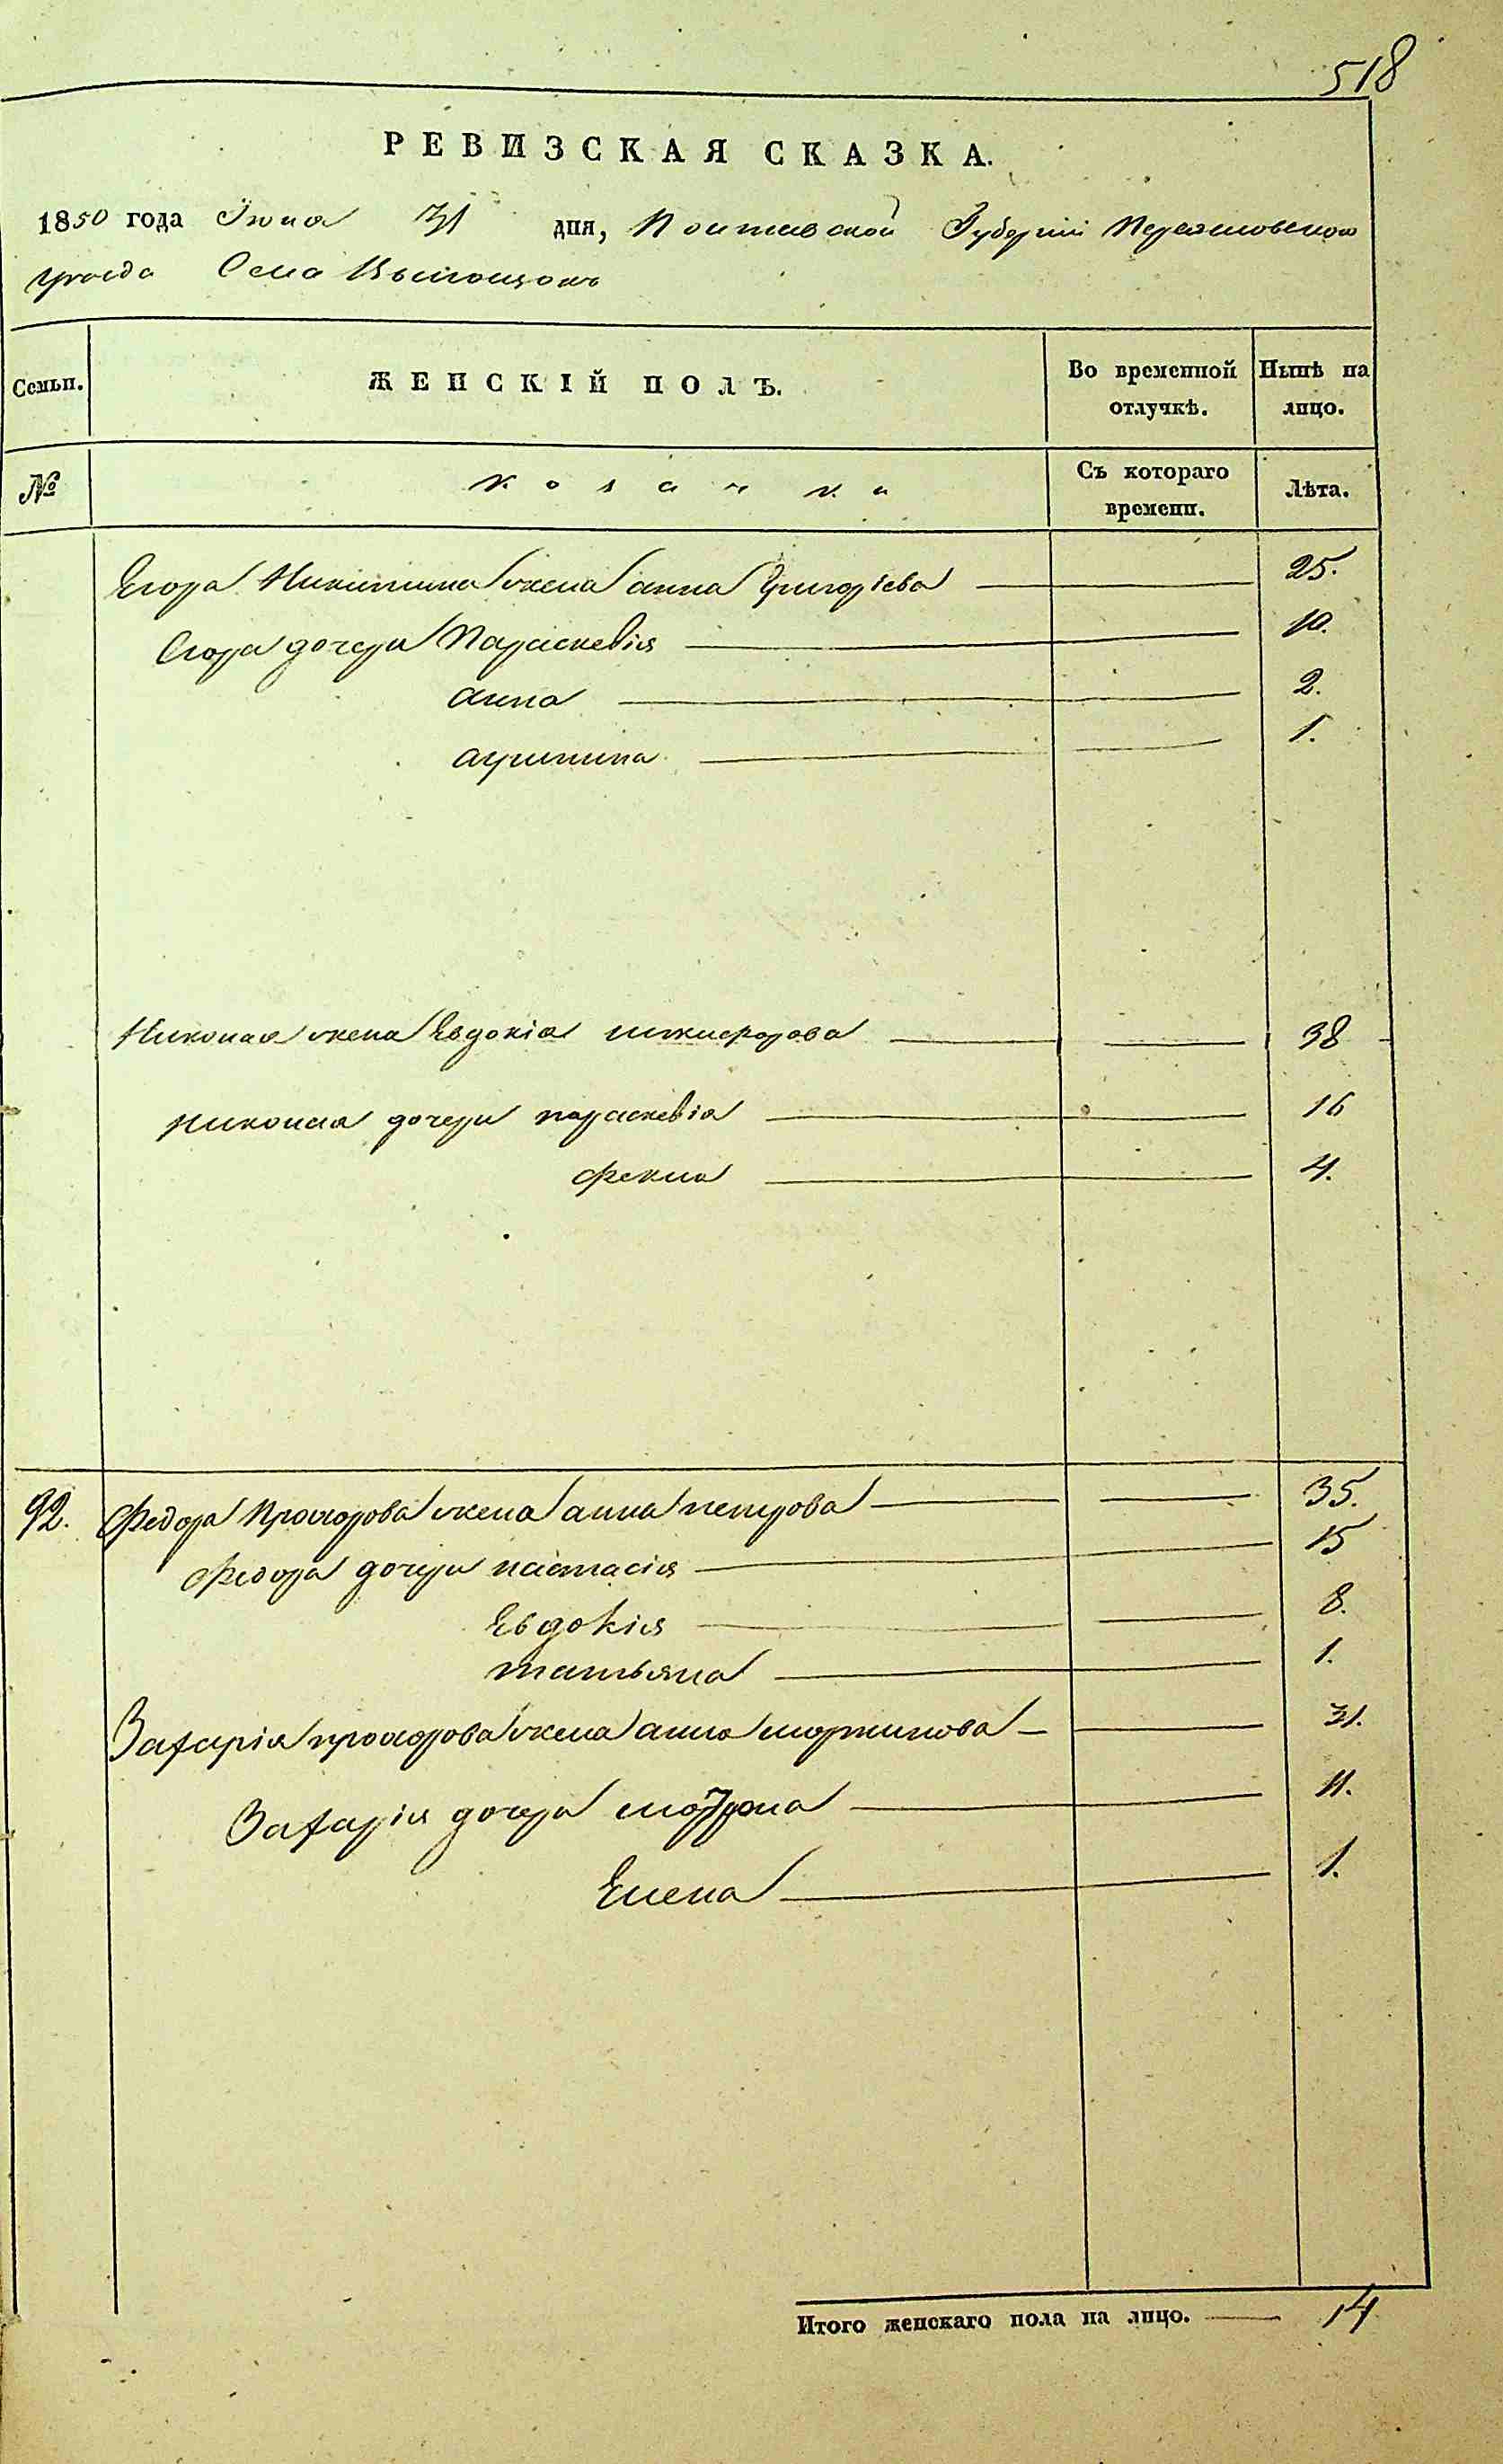 518
РЕВИЗСКАЯ СКАЗКА.
1850 года Іюля 31 дня, Полтавской Губерніи Переяславского
уезда Села
Семьи. ЖЕНСКІЙ ПОЛЪ. Во временной отлучкѣ. Нынѣ на лицо.
№ Козачки Съ котораго времени. Лѣта.
Егора Никитина жена анна Григоріева 25.
Егора дочери Параскевія 10.
анна 2.
1.
Николая жена Евдокія никифорова 38
николая дочери параскевія 16
Фекла 4.
92. Федора Прохорова жена анна петрова 35.
Федора дочери настасія 15
Евдокія 8.
татьяна 1.
Захарія прохорова жена анна мартинова 31.
Захарія дочери мотрона 11.
Елена 1.
Итого женскаго пола на лицо. 14